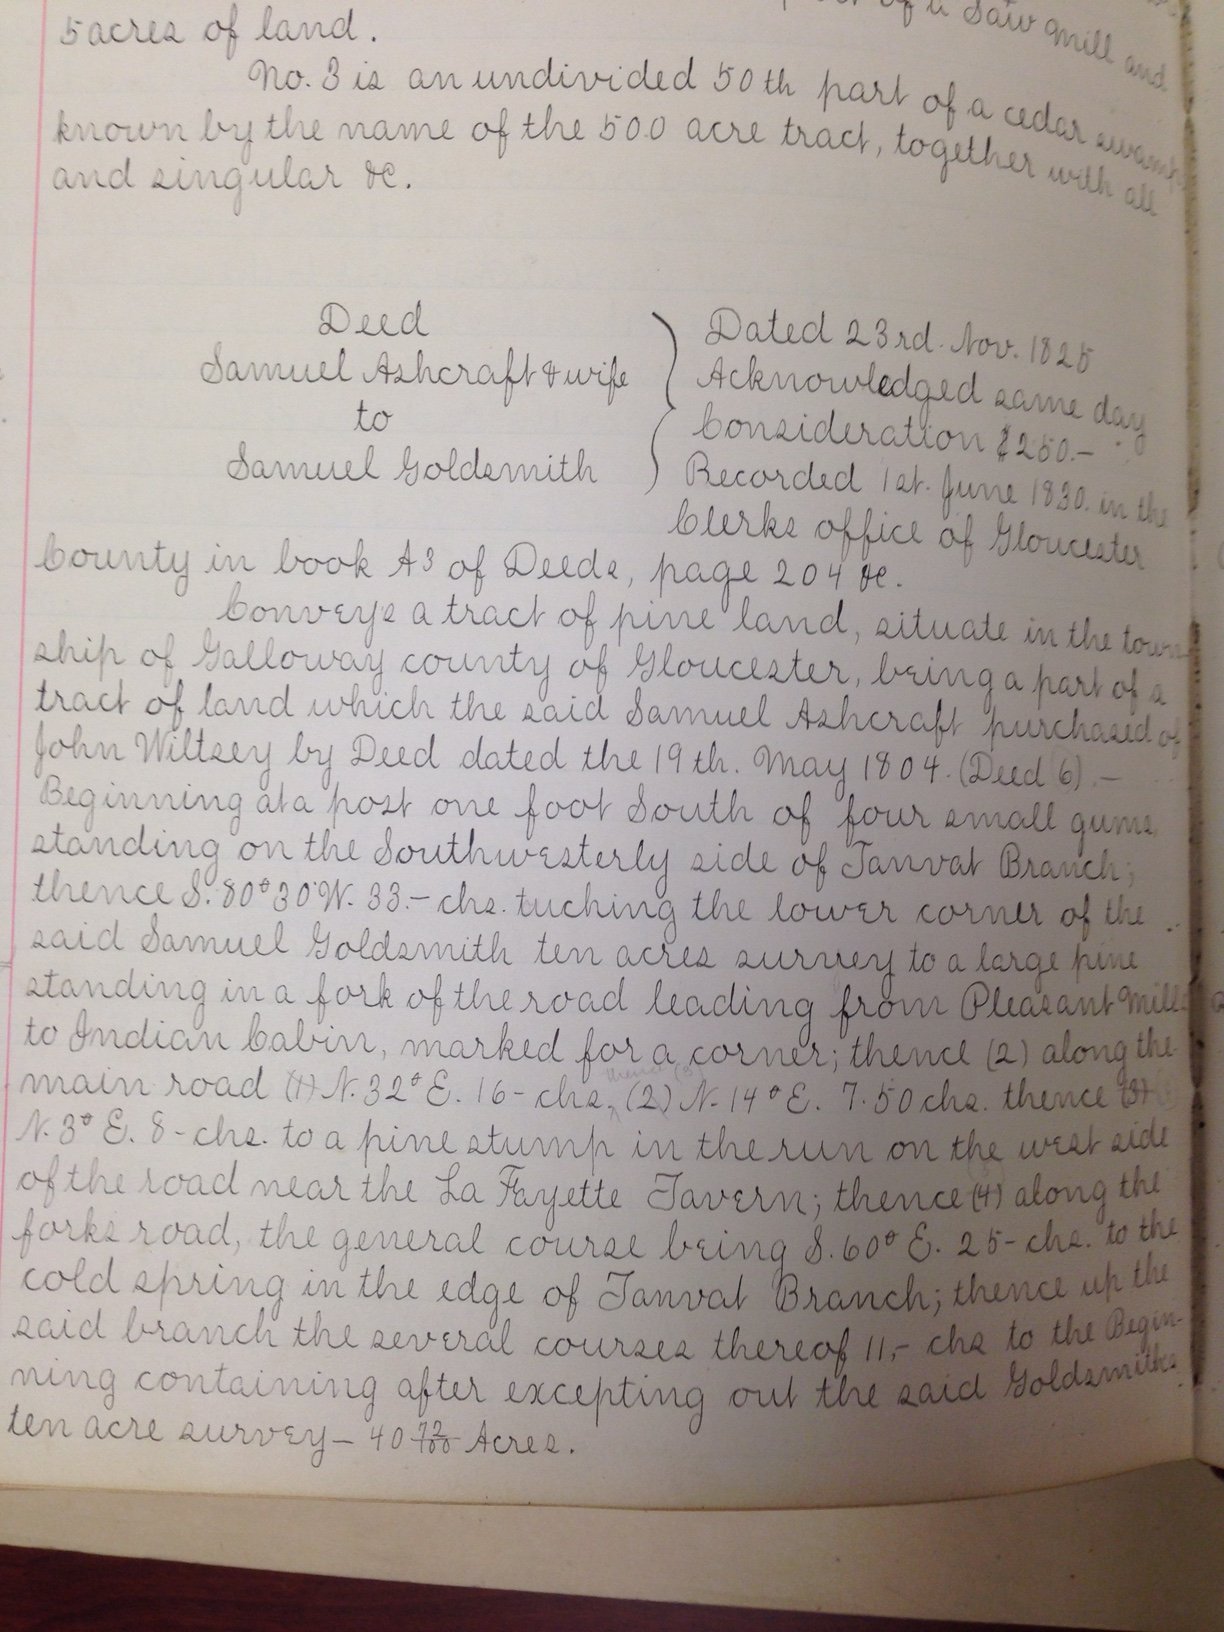 of a Saw Mill and
5 acres of land.
No. 3 is an undivided 50th part of a cedar swamp
known by the name of the 500 acre tract, together with all
and singular &c.
Deed
Samuel Ashcraft & wife
to
Samuel Goldsmith
Dated 23rd. Nov. 1825
Acknowledged same day
Consideration $250.-
Recorded 1st. June 1830. in the
Clerks office of Gloucester
County in book A3 of Deeds, page 204 &c.
Conveys a tract of pine land, situate in the town
ship of Galloway county of Gloucester, being a part of a
tract of land which the said Samuel Ashcraft purchased of
John Wiltsey by Deed dated the 19th. May 1804. (Deed 6).-
Beginning at a post one foot South of four small gums
standing on the Southwesterly side of Tanvat Branch;
thence S. 80° 30' W. 33.- chs. tuching the lower corner of the
said Samuel Goldsmith ten acres survey to a large pine
standing in a fork of the road leading from Pleasant Mills
to Indian Cabin, marked for a corner; thence (2) along the
main road (1) N. 32° E. 16- chs. (2) N. 14° E. 7.50 chs. thence (3)
N. 3° E. 8- chs. to a pine stump in the run on the west side
of the road near the La Fayette Tavern; thence (4) along the
forks road, the general course being S. 60° E. 25- chs. to the
cold spring in the edge of Tanvat Branch; thence up the
said branch the several courses thereof 11,- chs to the Begin-
ning containing after excepting out the said Goldsmiths
ten acre survey - 40 72/100 Acres.